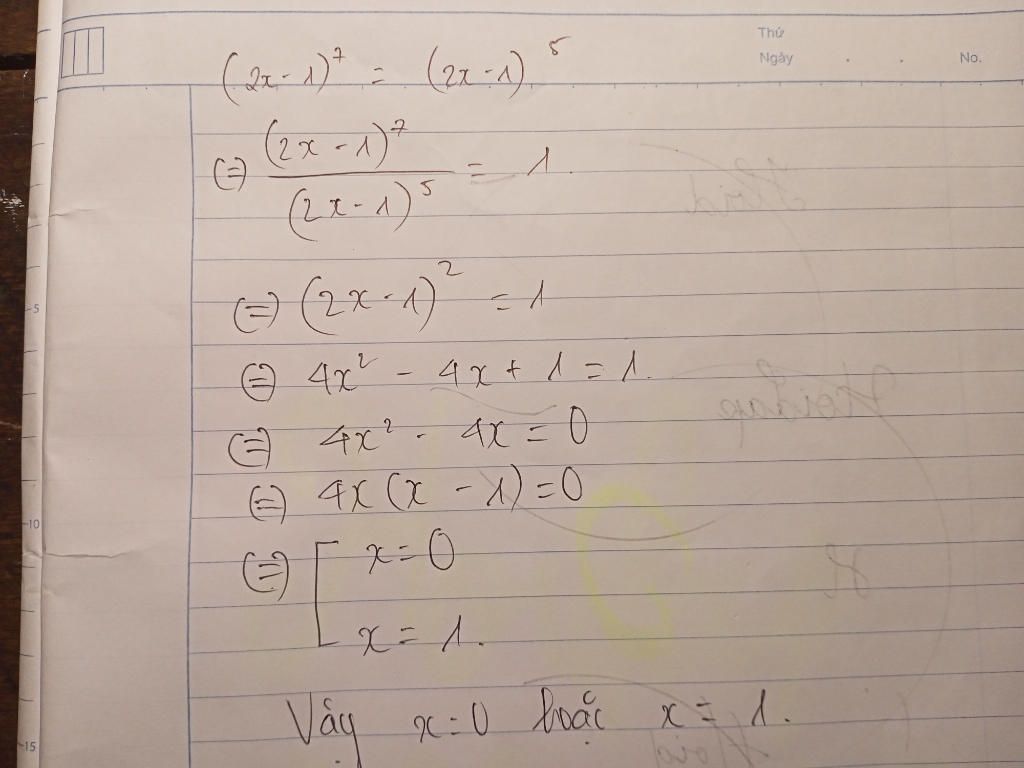 Thứ
Ngày . . No.
(2x - 1)⁷ = (2x - 1)⁵
(=) (2x - 1)⁷ / (2x - 1)⁵ = 1.
(=) (2x - 1)² = 1
(=) 4x² - 4x + 1 = 1.
(=) 4x² - 4x = 0
(=) 4x (x - 1) = 0
(=) [ x = 0
x = 1.
Vậy x = 0 hoặc x = 1.
5
10
15